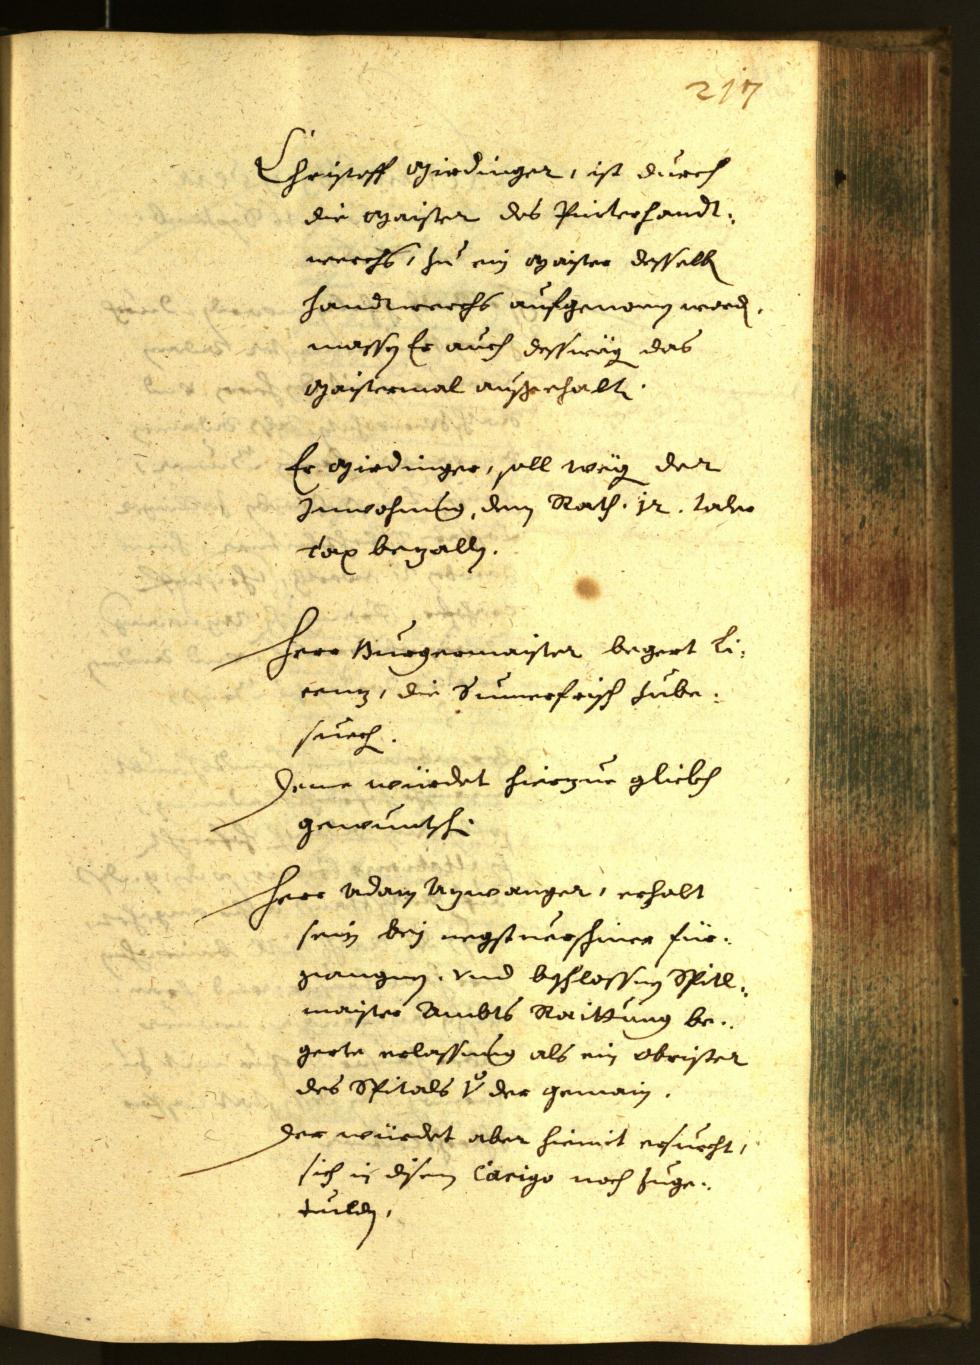 217
Christoff Mirdinger, ist durch
die Maister des Pinterhandt¬
werchs, zu ein Maister desselb
handtwerchs aufgenomen word,
massen Er auch dessweg das
Maistermal ausgehalt.
Er Mirdinger, soll weg der
Inwohnung, dem Rath. 12. taler
tax bezallen.
Herr Burgermaister begert Li¬
cenz, die Sumerfrisch zube¬
suech.
Deme würdet hierzue glickh
gewuntsch.
Herr Adam Anwanger, erhalt
sein bey negst verschiner für¬
gangnen. vnd beschlossnen Spitl¬
maister Ambts Raittung be¬
gerte erlassung als ein obrister
des Spitals V der gemain.
der würdet aber hiemit ersuecht,
sich in disem Carigo noch zuge¬
dulden,